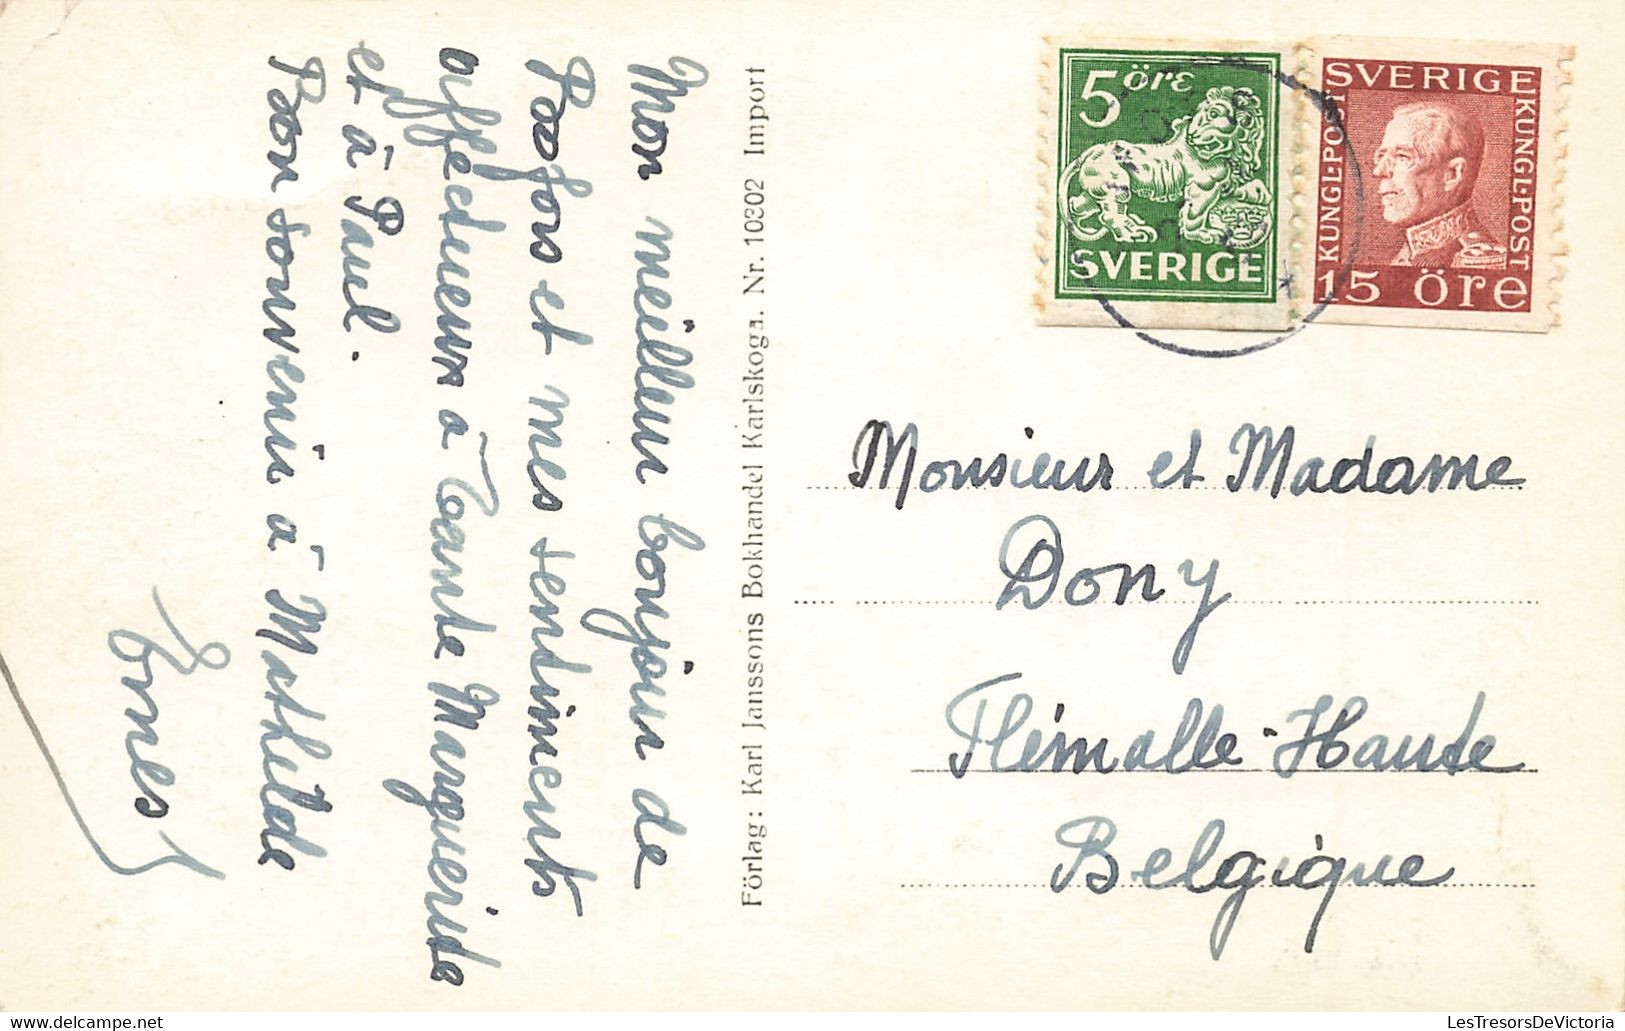 Mon meilleur bonjour de
Bofors et mes sentiments
affectueux à tante Marguerite
et à Paul.
Bon souvenir à Mathilde
Ernest
Förlag: Karl Janssons Bokhandel Karlskoga. Nr. 10302 Import
5 öre
SVERIGE
SVERIGE
KUNGL·POST
KUNGL·POST
15 öre
Monsieur et Madame
Dony
Flémalle-Haute
Belgique
LesTresorsDeVictoria